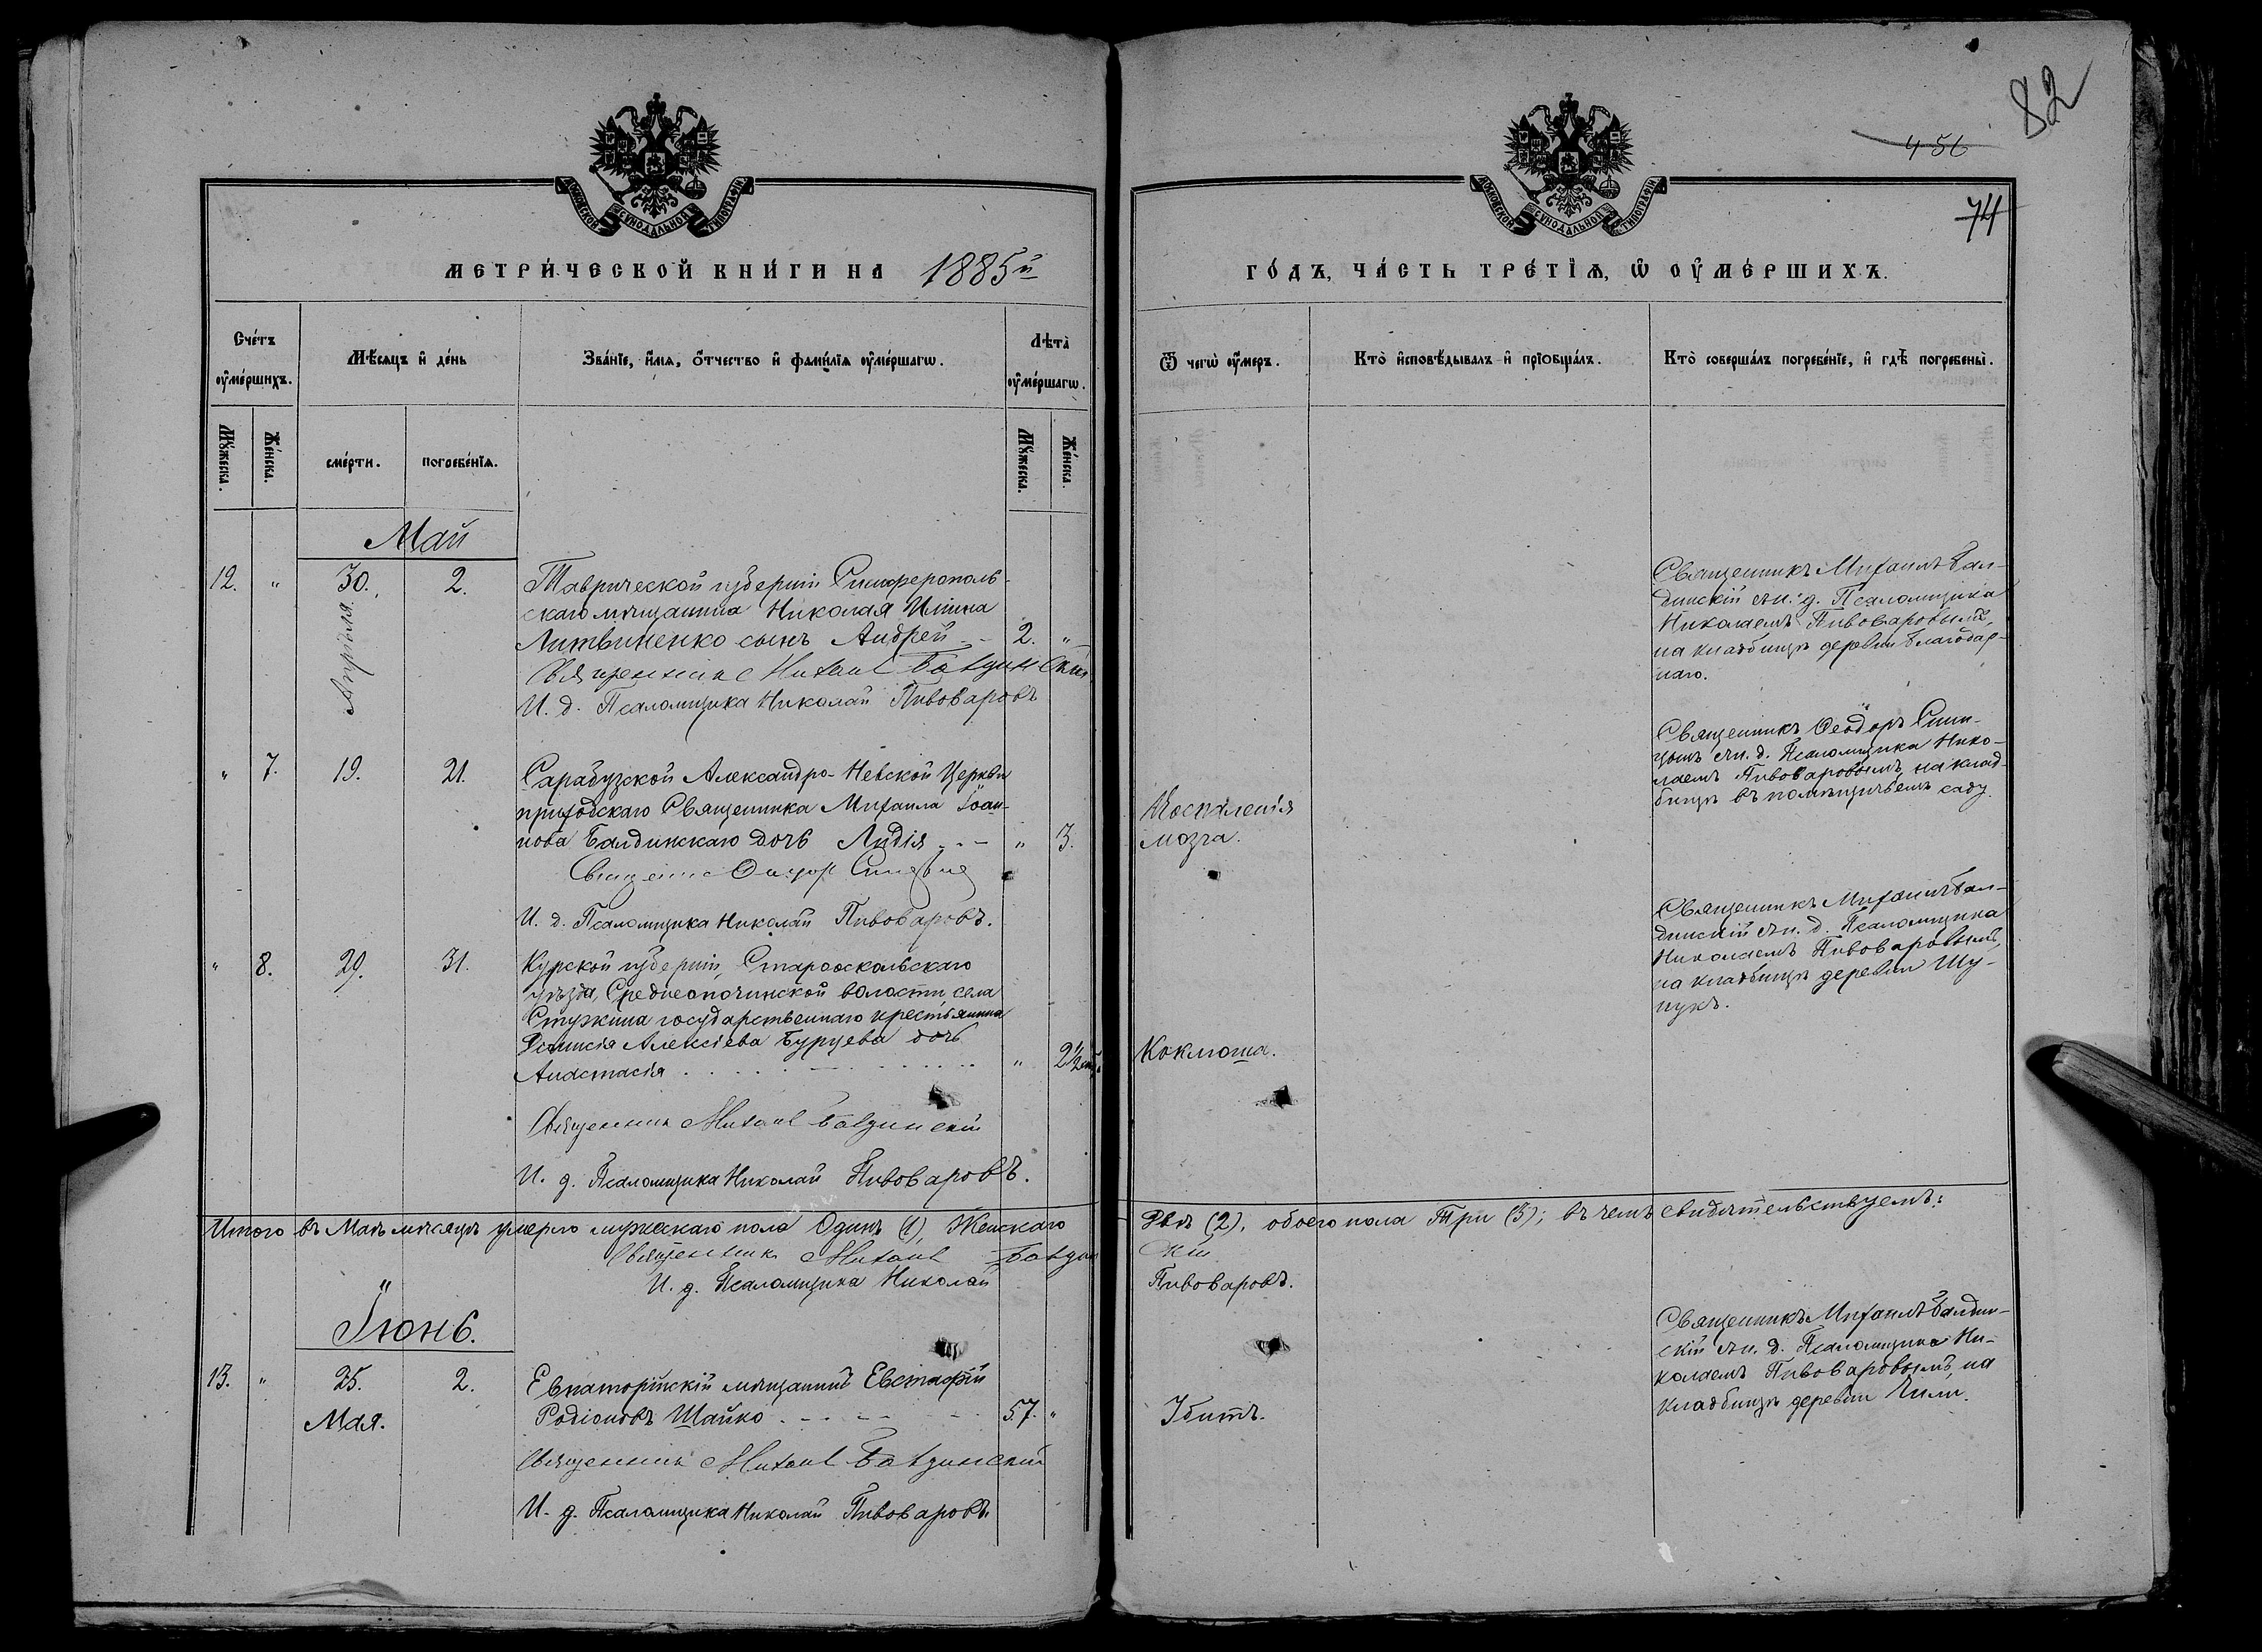 82
456
74
МОСКОВСКОЙ СУНОДАЛЬНОЙ ТИПОГРАФІИ
МОСКОВСКОЙ СУНОДАЛЬНОЙ ТИПОГРАФІИ
МЕТРИ́ЧЕСКОЙ КНИ́ГИ НА 1885й
ГО́ДЪ, ЧА́СТЬ ТРЕ́ТІѦ, Ѡ ОУ҆МЕ́РШИХЪ.
Сче́тъ оу҆ме́ршихъ.
Мѣ́сяцъ и҆ де́нь
Зва́нїе, и҆́мѧ, ѻ҆́тчество и҆ фами́лїѧ оу҆ме́ршагѡ.
Лѣта̀ оу҆ме́ршагѡ.
Ѿ чегѡ̀ оу҆́меръ.
Кто̀ и҆сповѣ́дывалъ и҆ прїобща́лъ.
Кто̀ соверша́лъ погребе́нїе, и҆ гдѣ̀ погребены̀.
Мꙋ́жеска.
Же́нска.
сме́рти.
погребе́нїѧ.
Мꙋ́жеска.
Же́нска.
Май
12. " 30. 2.
Апрѣля
Таврической губерніи Симферополь-
скаго мѣщанина Николая Ильина
Литвиненко сынъ Андрей - - 2. "
Священникъ Михаилъ Балдинскій
И. д. Псаломщика Николай Пивоваровъ
Священникъ Михаилъ Бал-
динскій съ и. д. Псаломщика
Николаемъ Пивоваровымъ,
на кладбищѣ деревни Благодар-
наго.
" 7. 19. 21.
Сарабузской Александро-Невской Церкви
приходскаго Священника Михаила Іоан-
нова Балдинскаго дочь Лидія - - - " 3.
Священникъ
И. д. Псаломщика Николай Пивоваровъ.
Воспаленія
мозга.
Священникъ Ѳеодоръ
съ и. д. Псаломщика Нико-
лаемъ Пивоваровымъ, на клад-
бищѣ въ помѣщичьемъ саду.
" 8. 29. 31.
Курской губерніи, Старооскольскаго
уѣзда, Среднеопочинской волости, села
государственнаго крестьянина
Діонисія Алексіева Бурцева дочь
Анастасія " 2½
Священникъ Михаилъ Балдинскій
И. д. Псаломщика Николай Пивоваровъ.
Коклюша.
Священникъ Михаилъ Бал-
динскій съ и. д. Псаломщика
Николаемъ Пивоваровымъ,
на кладбищѣ деревни Шу-
нукъ.
Итого въ Маѣ мѣсяцѣ умерло мужескаго пола Одинъ (1), Женскаго Двѣ (2), обоего пола Три (3); въ чемъ свидѣтельствуемъ:
Священникъ Михаилъ Балдинскій
И. д. Псаломщика Николай Пивоваровъ.
Іюнь.
13. " 25. 2.
Мая.
Евпаторійскій мѣщанинъ Евстафій
Родіоновъ Шайко - - - - 57. "
Священникъ Михаилъ Балдинскій
И. д. Псаломщика Николай Пивоваровъ.
Убитъ.
Священникъ Михаилъ Балдин-
скій съ и. д. Псаломщика Ни-
колаемъ Пивоваровымъ, на
кладбищѣ деревни